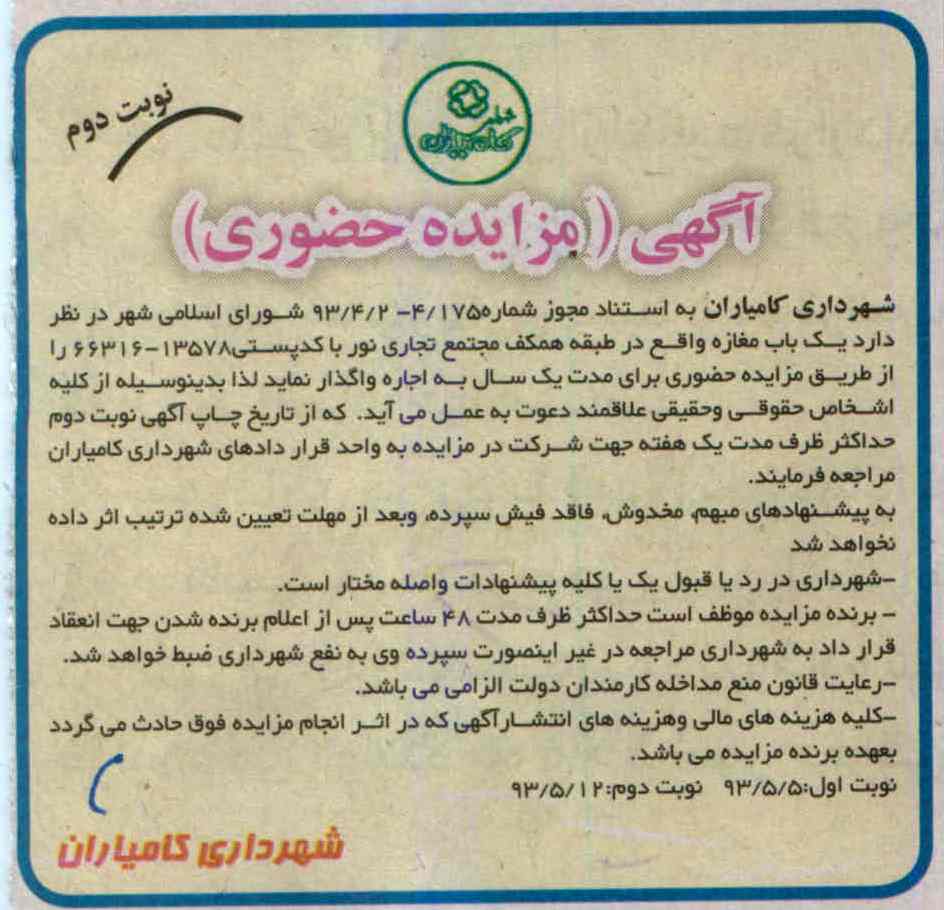 نوبت دوم
شهر
کامیاران
آگهی (مزایده حضوری)
شهرداری کامیاران به استناد مجوز شماره۴/۱۷۵– ۹۳/۴/۲ شورای اسلامی شهر در نظر
دارد یک باب مغازه واقع در طبقه همکف مجتمع تجاری نور با کدپستی۱۳۵۷۸–۶۶۳۱۶ را
از طریق مزایده حضوری برای مدت یک سال به اجاره واگذار نماید لذا بدینوسیله از کلیه
اشخاص حقوقی وحقیقی علاقمند دعوت به عمل می آید. که از تاریخ چاپ آگهی نوبت دوم
حداکثر ظرف مدت یک هفته جهت شرکت در مزایده به واحد قرار دادهای شهرداری کامیاران
مراجعه فرمایند.
به پیشنهادهای مبهم، مخدوش، فاقد فیش سپرده، وبعد از مهلت تعیین شده ترتیب اثر داده
نخواهد شد
–شهرداری در رد یا قبول یک یا کلیه پیشنهادات واصله مختار است.
– برنده مزایده موظف است حداکثر ظرف مدت ۴۸ ساعت پس از اعلام برنده شدن جهت انعقاد
قرار داد به شهرداری مراجعه در غیر اینصورت سپرده وی به نفع شهرداری ضبط خواهد شد.
–رعایت قانون منع مداخله کارمندان دولت الزامی می باشد.
–کلیه هزینه های مالی وهزینه های انتشارآگهی که در اثر انجام مزایده فوق حادث می گردد
بعهده برنده مزایده می باشد.
نوبت اول:۹۳/۵/۵ نوبت دوم:۹۳/۵/۱۲
شهرداری کامیاران